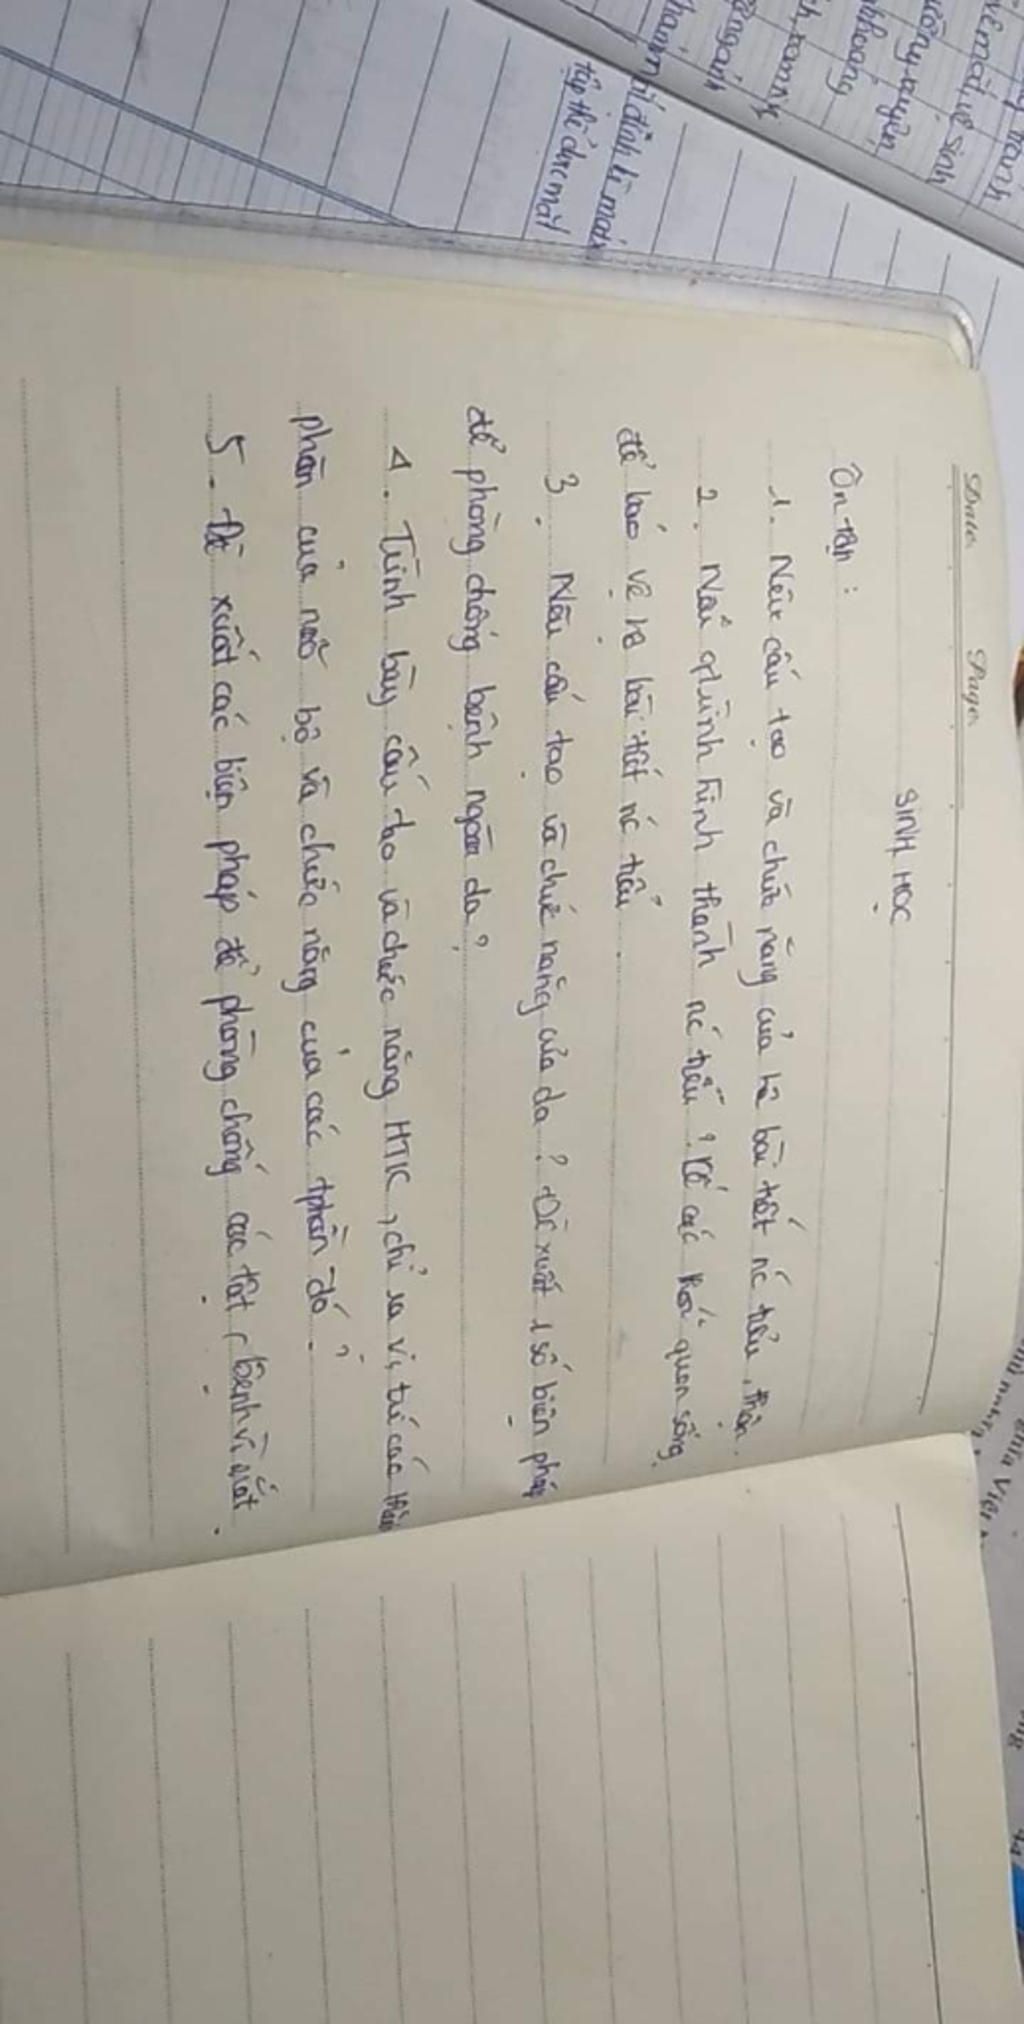 Date Page
SINH HỌC
Ôn tập :
1. Nêu cấu tạo và chức năng của hệ bài tiết nc tiểu, thận.
2. Nêu qtrình hình thành nc tiểu ? Kể các thói quen sống
để bảo vệ hệ bài tiết nc tiểu.
3. Nêu cấu tạo và chức năng của da ? Đề xuất 1 số biện pháp
để phòng chống bệnh ngoài da ?
4. Trình bày cấu tạo và chức năng HTK, chỉ ra vị trí các thành
phần của não bộ và chức năng của các tphần đó ?
5. Đề xuất các biện pháp để phòng chống các tật, bệnh về mắt.
vệ sinh
khoảng
từ đỉnh lì
tập thể dục mắt